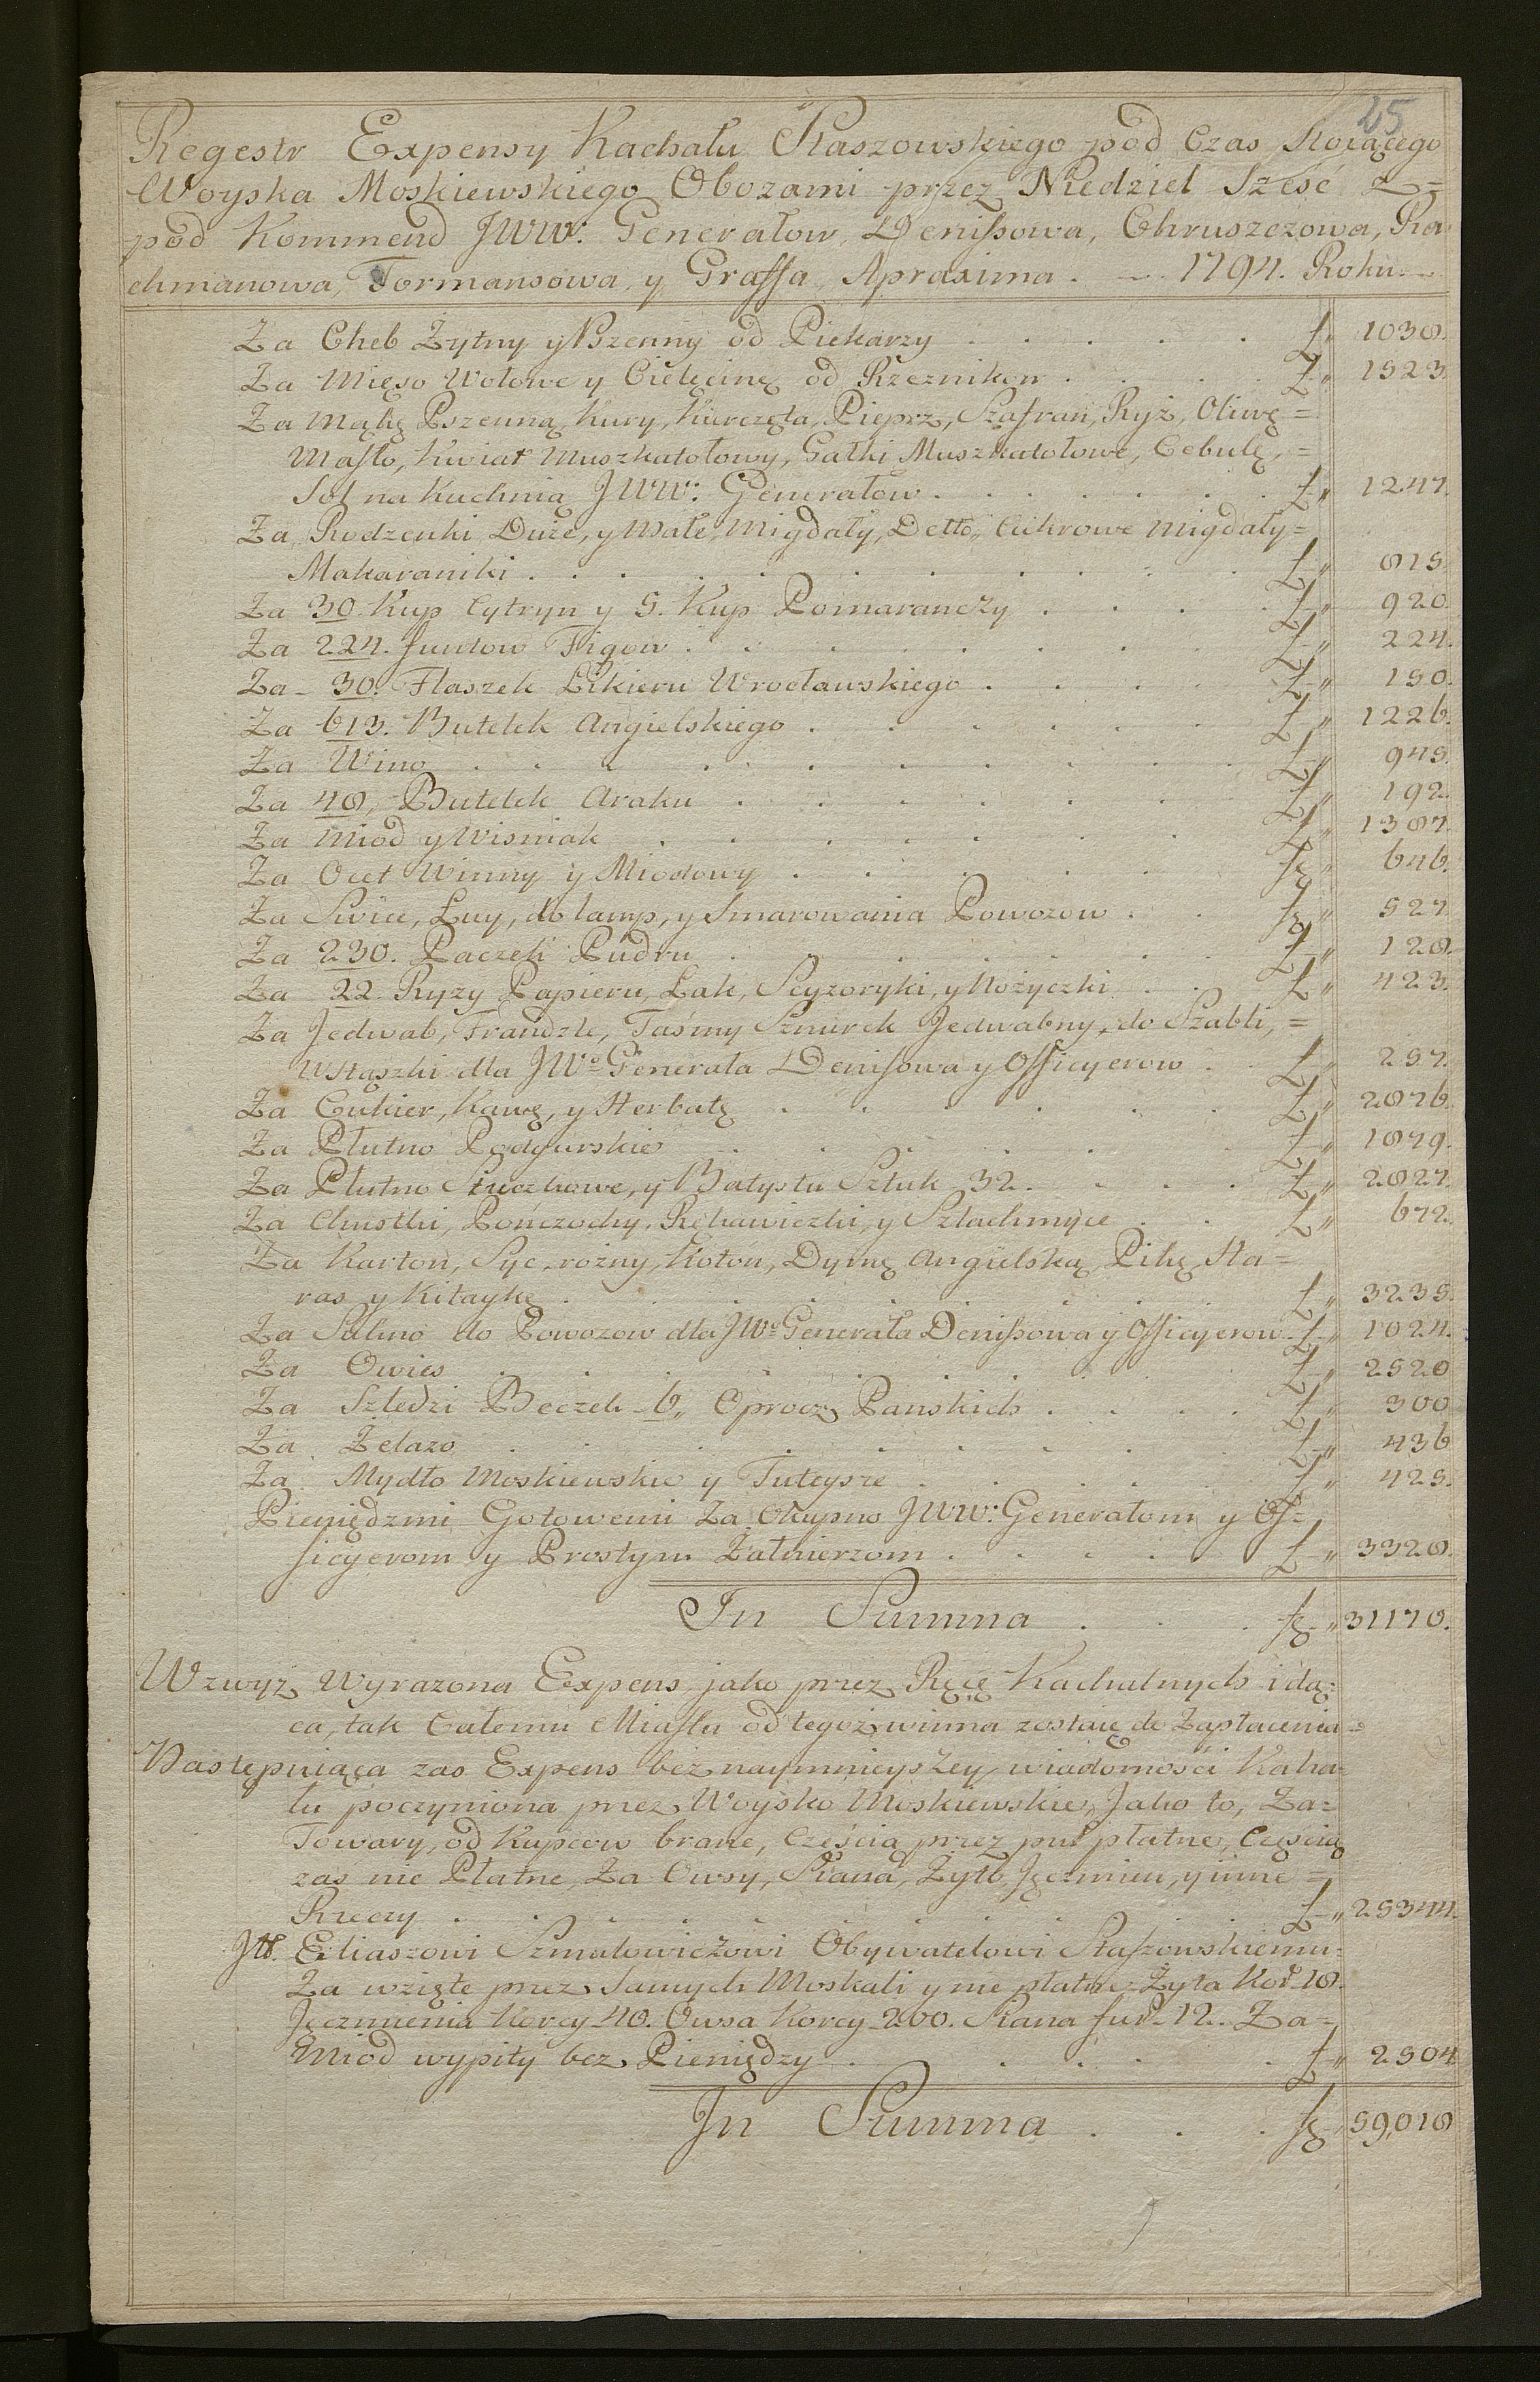 25
Regestr Expensy Kachału Staszowskiego pod Czas stoiącego
Woyska Moskiewskiego Obozami przez Niedziel Sześć z=
pod Kommend JWW. Generałow, Denissowa, Chruszczowa, Ra
chmanowa, Tormansowa, y Graffa Apraxima. — 1794. Roku —
Za Chleb Żytny y Pszenny od Piekarzy . . . . . f „ 1038.
Za Mięso Wołowe y Cielęcinę od Rzeznikow . . . . f „ 1523.
Za Mąkę Pszenną, Kury, Kurczęta, Pieprz, Szafran, Ryż, Oliwę =
Masło, Kwiat Muszkatołowy, Gałki Muszkatołowe, Cebulę, =
Sol na Kuchnią JWW: Generałow . . . . . . f „ 1247.
Za Rodzenki Duże, y Małe, Migdały, Detto, Cukrowe migdały =
Makaraniki . . . . . . . . . f „ 815.
Za 30. Kup Cytryn y 5. Kup Pomaranczy . . . . f „ 920.
Za 224. funtow Figow . . . . . . . f „ 224.
Za - 30. Flaszek Likieru Wrocławskiego . . . . f „ 150.
Za 613. Butelek Angielskiego . . . . . . f „ 1226.
Za Wino . . . . . . . . . f „ 945.
Za 48, Butelek Araku . . . . . . . f „ 192.
Za Miod y Wisniak . . . . . . . f „ 1387.
Za Ocet Winny y Miodowy . . . . . . fg „ 646.
Za Swice, Łuy, do lamp, y Smarowania Powozow . . fg „ 527.
Za 230. Paczek Pudru . . . . . . . f „ 128.
Za 22. Ryzy Papieru, Lak, Scyzoryki, y Nożyczki . . f „ 423.
Za Jedwab, Frandzle, Taśmy Sznurek Jedwabny, do Szabli, =
Wstąszki dla JWo Generała Denissowa y Officyerow . . f „ 257.
Za Cukier, Kawę, y Herbatę . . . . . . f „ 2876.
Za Płutno Podgurskie . . . . . . f „ 1879.
Za Płutno Sztuczkowe, y Batystu Sztuk 32. . . . f „ 2827.
Za Chustki, Pończochy, Rękawiczki, y Szlachmyce . . f „ 672.
Za Karton, Syc, rozny, Koton, Dymę Angielską, Pikę, Ha=
ras y Kitaykę . . . . . . . . f „ 3235.
Za Sukno do Powozow dla JWo Generała Denissowa y Officyerow. f „ 1024.
Za Owies . . . . . . . . f „ 2520
Za Szledzi Beczek - 6, Oprocz Panskich . . . . f „ 300
Za Żelazo . . . . . . . . f „ 436
Za Mydło Moskiewskie y Tuteysze . . . . f „ 425.
Pieniędzmi Gotowemi Za Okupno JWW: Generałom y Of=
ficyerom y Prostym Żałnierzom . . . . f „ 3328.
In Summa . . . fg „ 31170.
Wzwyż Wyrazona Expens jako przez Ręcę Kachalnych idą=
ca, tak Całemu Miastu od tegoż winna zostaie do Zapłacenia =
Następuiąca zas Expens bez naymnieyszey wiadomości Kaha=
łu poczyniona przez Woysko Moskiewskie, Jako to, Za=
Towary, od Kupcow brane, Częścią przez puł płatne, Częścią
zaś nie Płatne, Za Owsy, Siana, Żyto Jęczmien, y inne =
Rzeczy . . . . . . . . f „ 25344.
Eliaszowi Szmulowiczowi Obywatelowi Staszowskiemu =
Za wzięte przez Samych Moskali y nie płatne Żyta Kor 18.
Jęczmienia Korcy 40. Owsa Korcy 200. Siana fur. 12. Za =
Miod wypity bez Pieniędzy . . . . f „ 2504
In Summa . . . fg „ 59,018